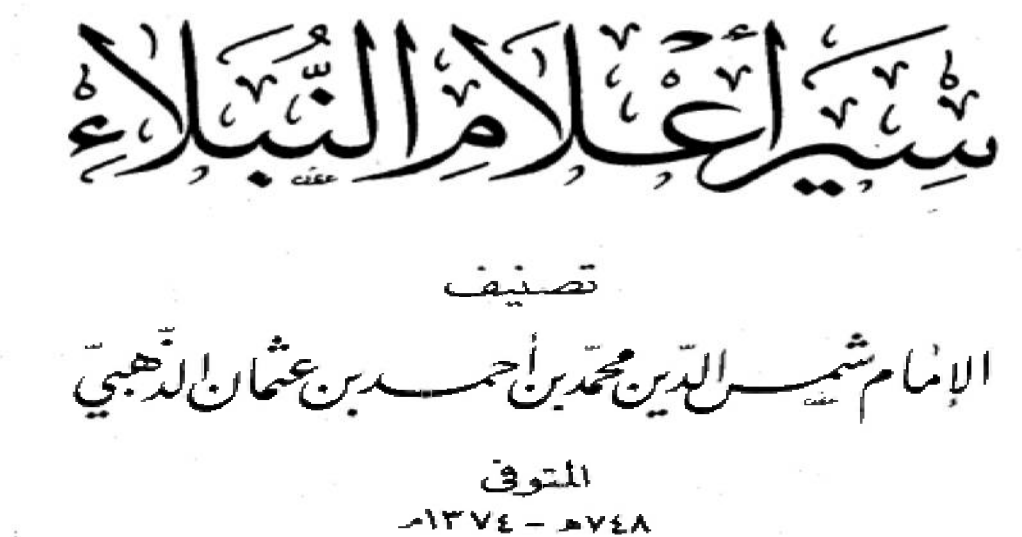 سِيَر أَعْلَامِ النُّبَلَاءِ
تصنيف
الإمام شمس الدّين محمّد بن أحمد بن عثمان الذّهبيّ
المتوفى
٧٤٨هـ - ١٣٧٤م